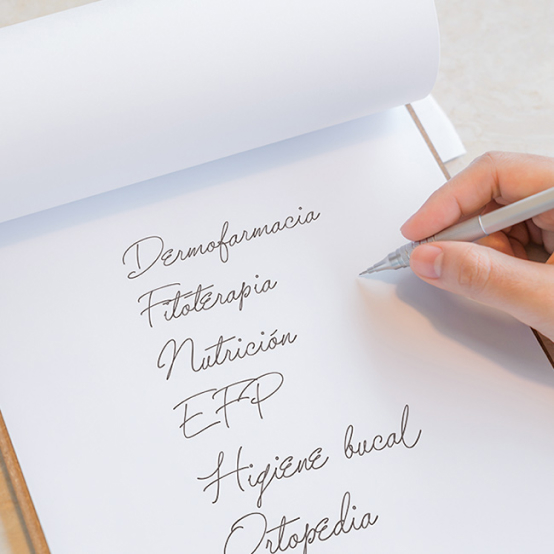 Dermofarmacia
Fitoterapia
Nutrición
EFP
Higiene bucal
Ortopedia